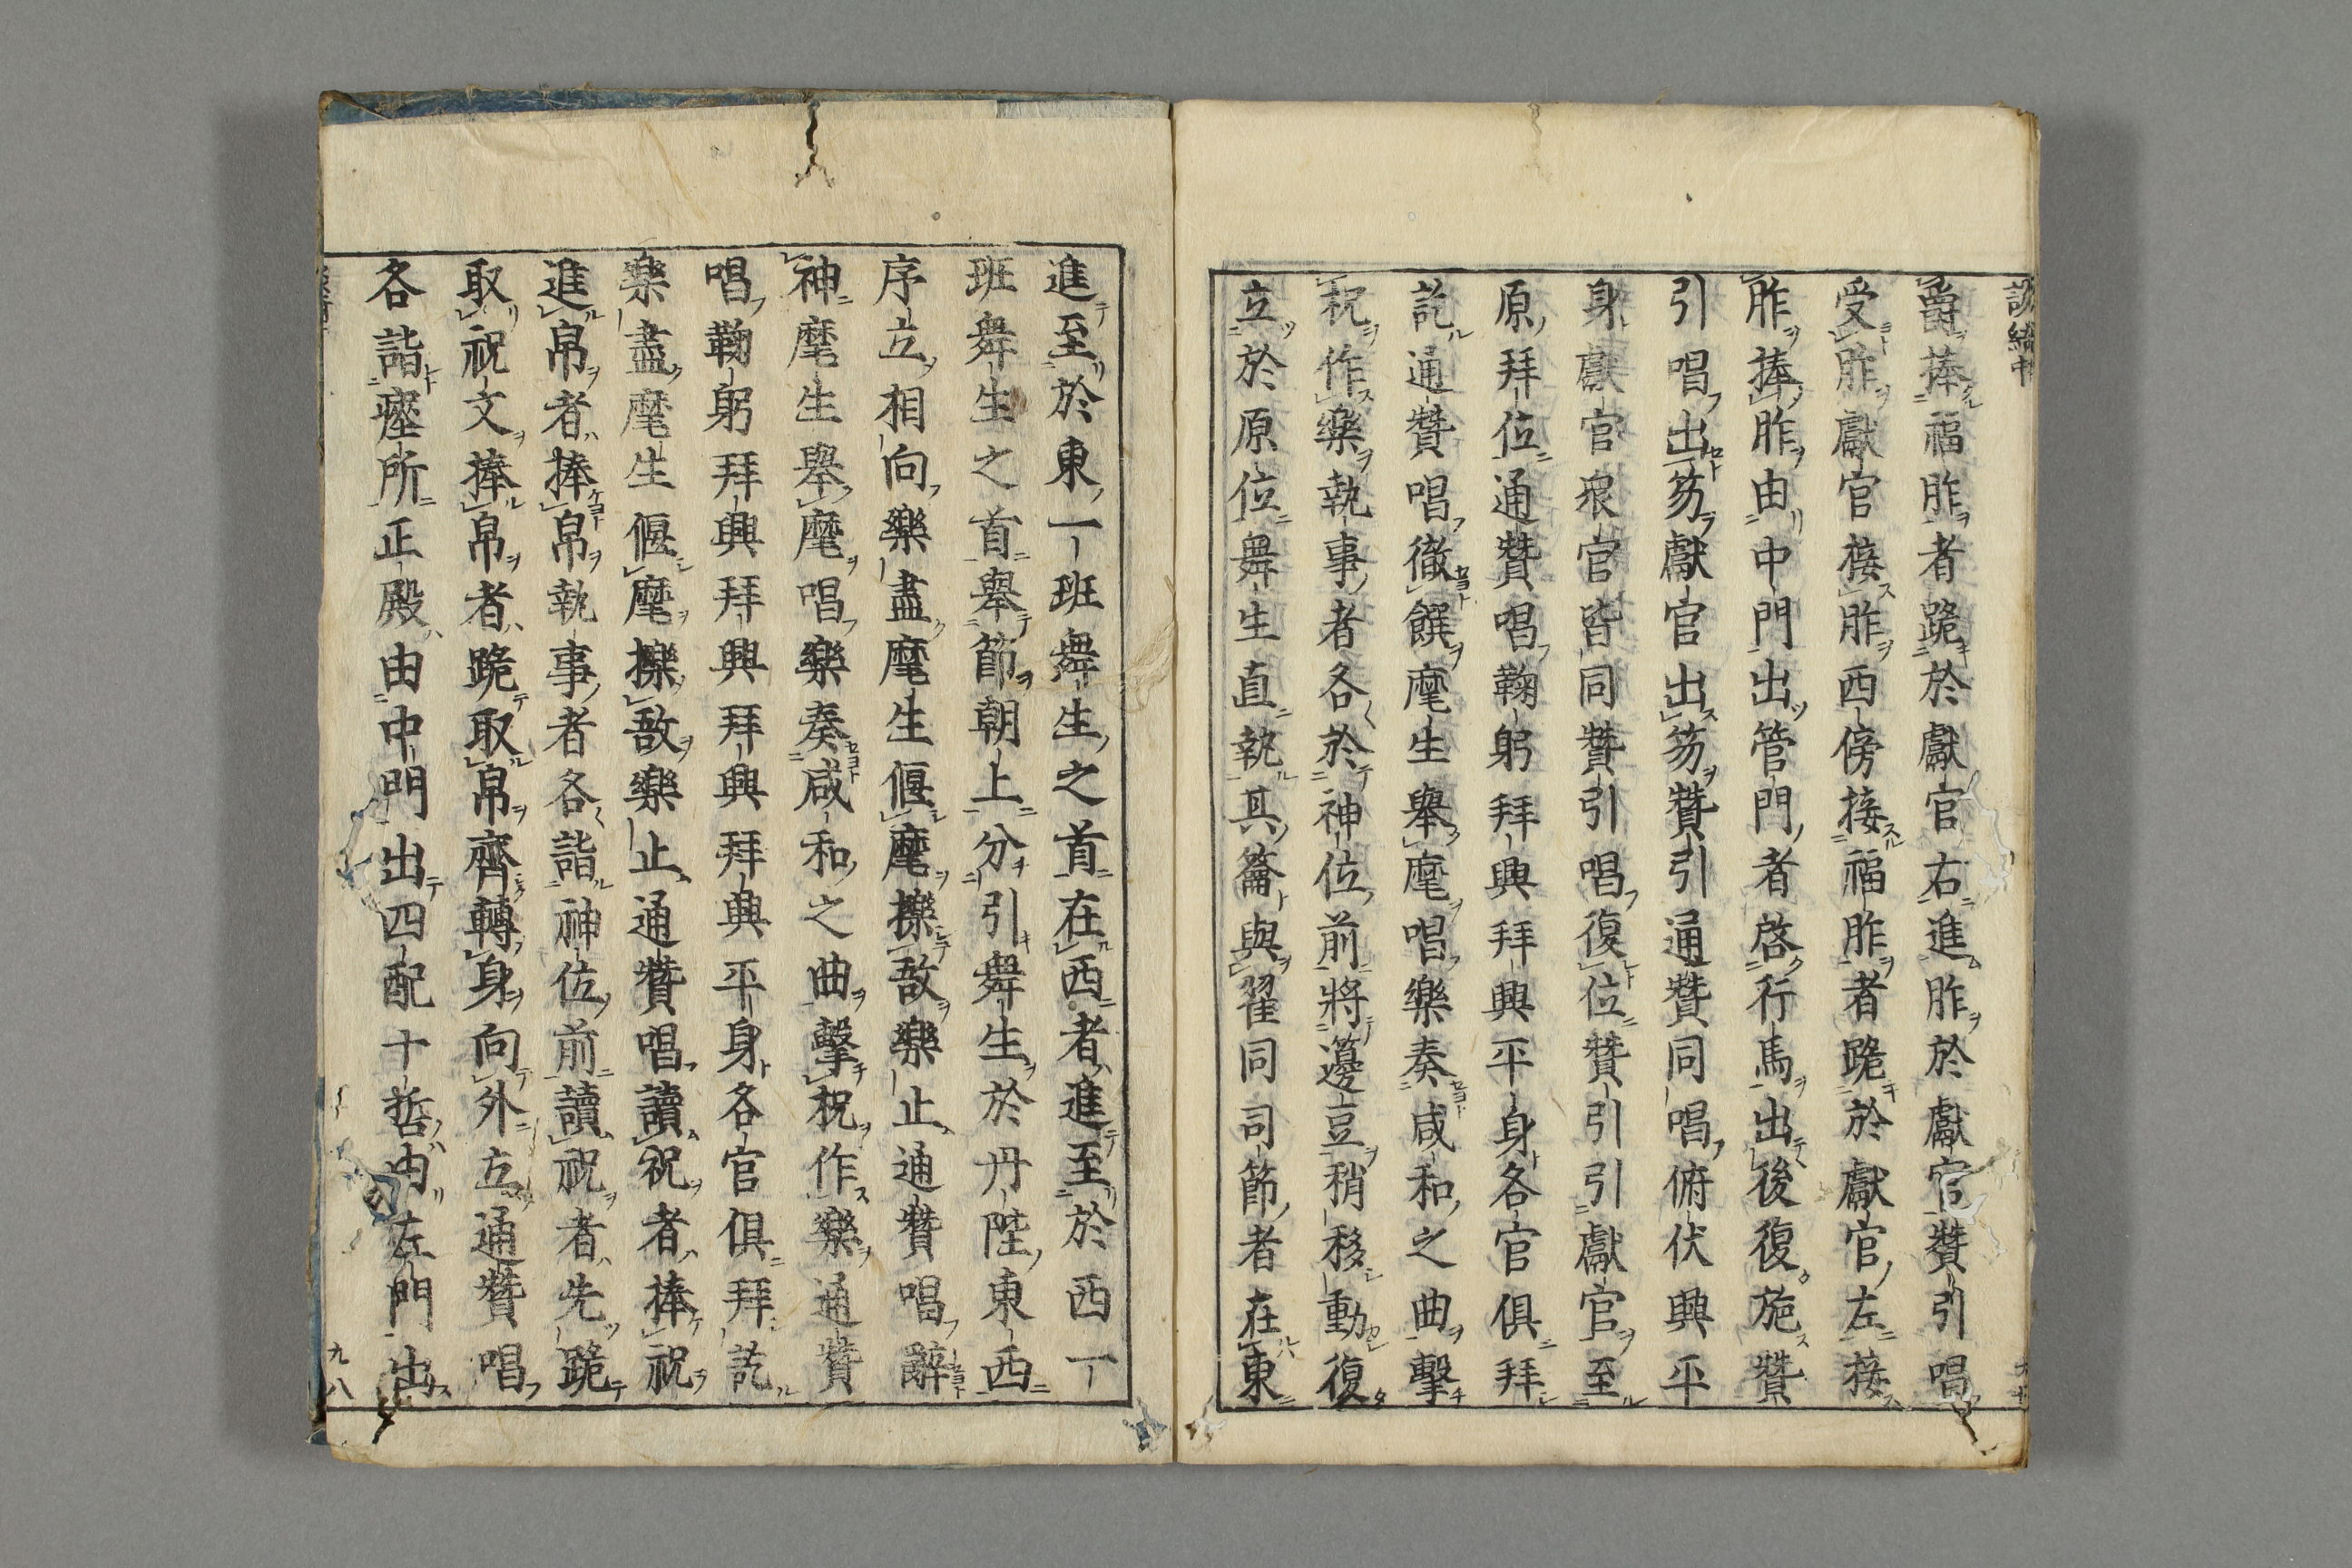 爵捧福胙者跪於獻官右進胙於獻官贊引唱
受胙獻官接胙西傍接福胙者跪於獻官左接
胙捧胙由中門出管門者啓行馬出後復施贊
引唱出笏獻官出笏贊引通贊同唱俯伏興平
身獻官衆官皆同贊引唱復位贊引引獻官至
原拜位通贊唱鞠躬拜興拜興平身各官俱拜
訖通贊唱徹饌麾生舉麾唱樂奏咸和之曲擊
柷作樂執事者各於神位前將籩豆稍移動復
立於原位舞生直執其籥與翟同司節者在東
進至於東一班舞生之首在西者進至於西一
班舞生之首舉節朝上分引舞生於丹陛東西
序立相向樂盡麾生偃麾擽敔樂止通贊唱辭
神麾生舉麾唱樂奏咸和之曲擊柷作樂通贊
唱鞠躬拜興拜興拜興拜興平身各官俱拜訖
樂盡麾生偃麾擽敔樂止通贊唱讀祝者捧祝
進帛者捧帛執事者各詣神位前讀祝者先跪
取祝文捧帛者跪取帛齊轉身向外立通贊唱
各詣瘞所正殿由中門出四配十哲由左門出
九八